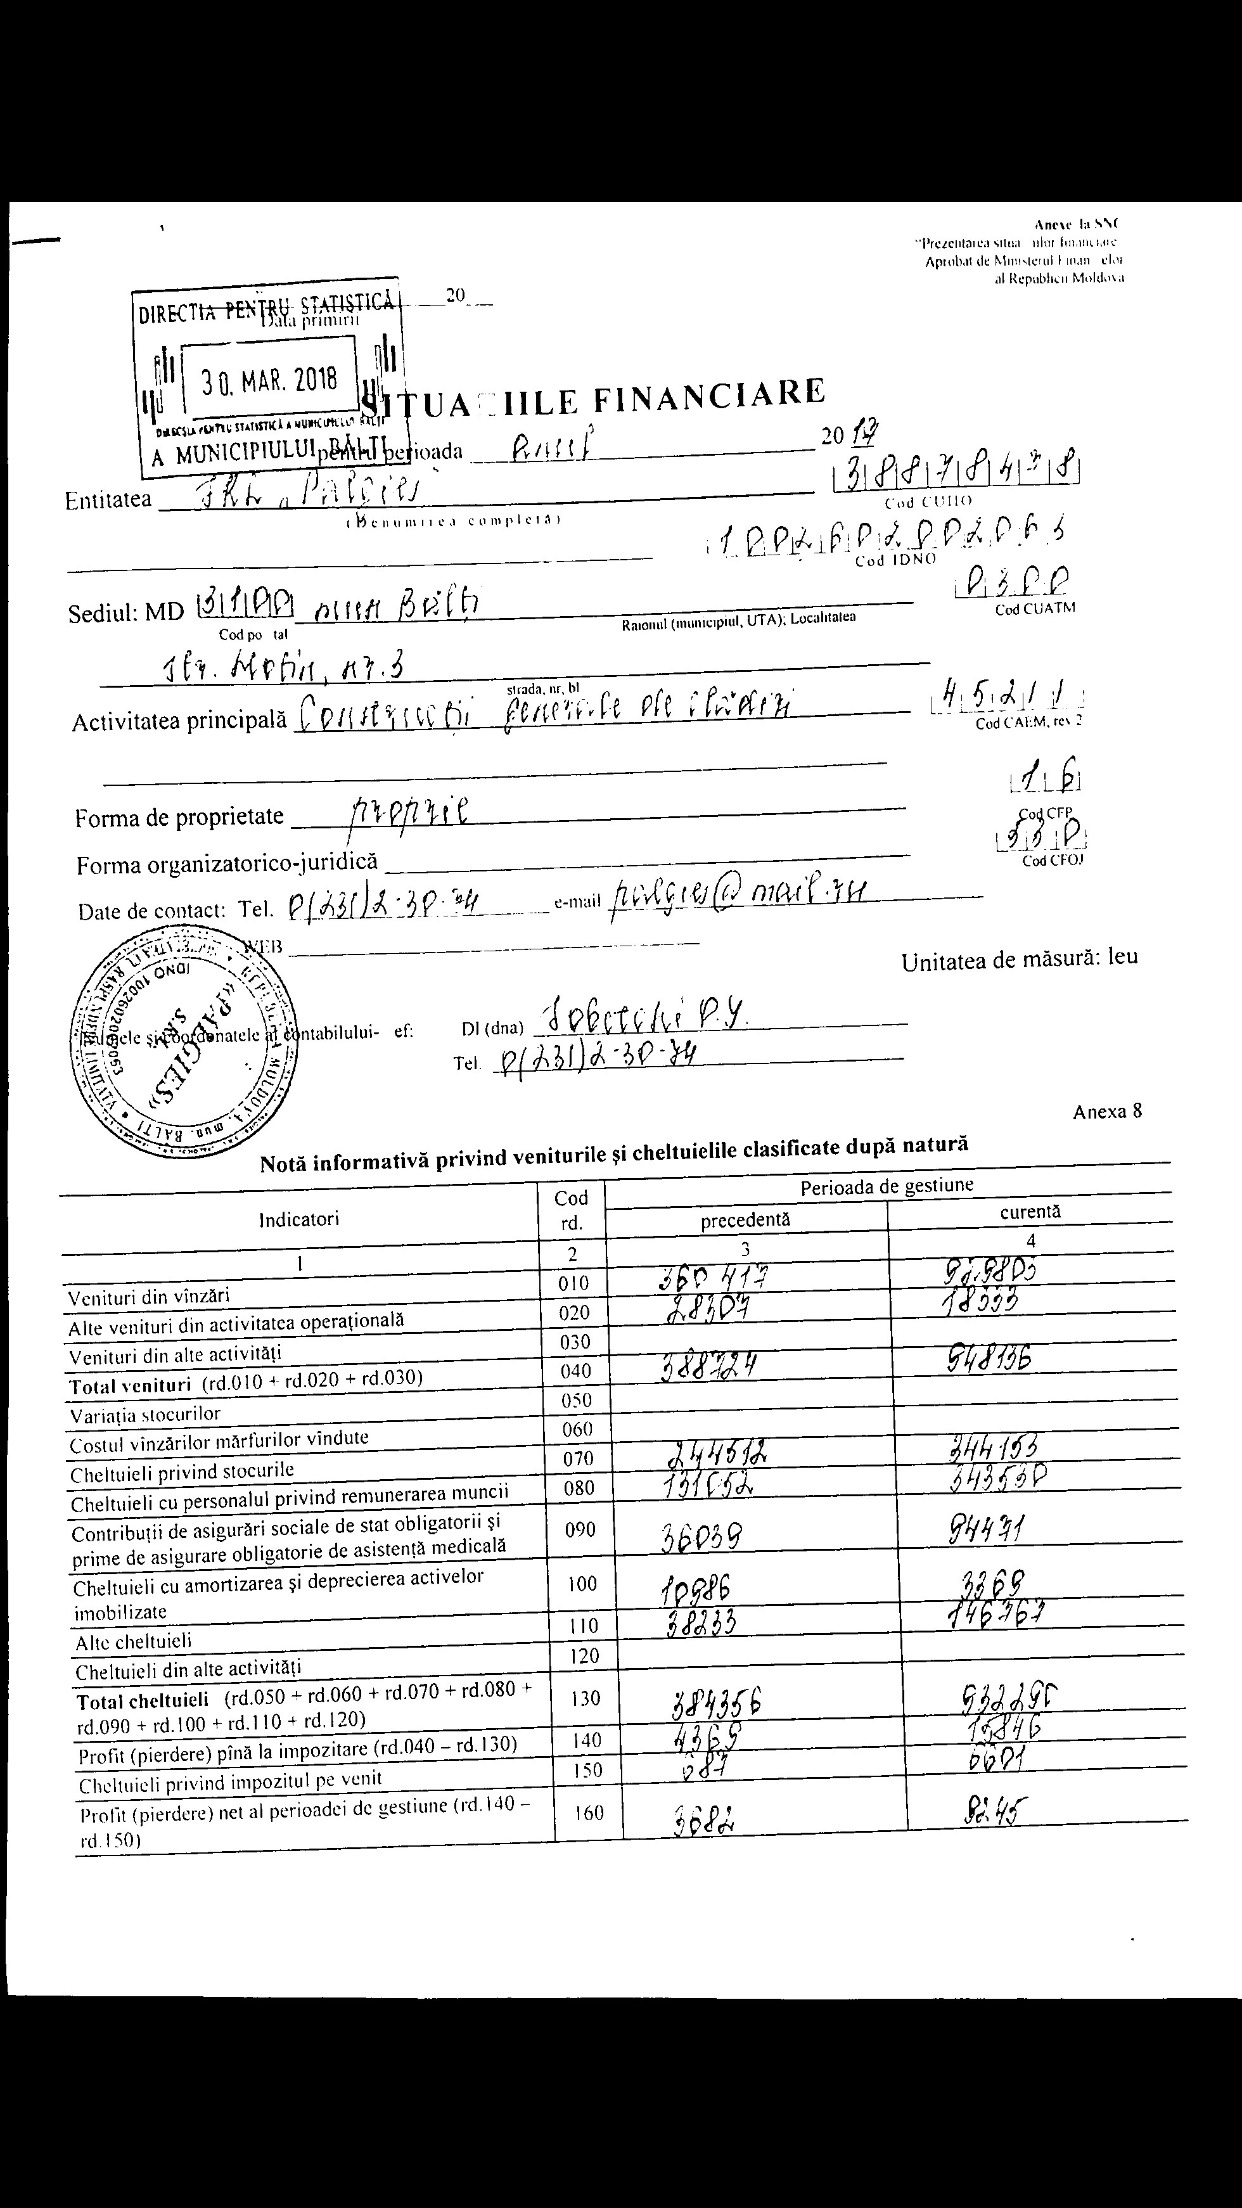 Anexe la SNC
"Prezentarea situa iilor financiare
Aprobat de Ministerul Finan elor
al Republicii Moldova
DIRECTIA PENTRU STATISTICĂ
Data primirii
20
30. MAR. 2018
SITUA IILE FINANCIARE
DIRECȚIA PENTRU STATISTICĂ A MUNICIPIULUI BĂLȚI
A MUNICIPIULUI BĂLȚI
pentru perioada anul 2017
Entitatea SRL „Palgies"
38878478
(Denumirea completă)
Cod CUIIO
1002602002063
Cod IDNO
Sediul: MD 3100 mun Bălți
0300
Cod po tal
Raionul (municipiul, UTA); Localitatea
Cod CUATM
str. , nr. 3
strada, nr, bl
Activitatea principală Construcții generale de clădiri
45211
Cod CAEM, rev 2
16
Forma de proprietate
Cod CFP
530
Forma organizatorico-juridică
Cod CFOJ
Date de contact: Tel. 0(231)2-30-74 e-mail palgies@mail.ru
WEB
Unitatea de măsură: leu
și coordonatele al contabilului- ef: Dl (dna)
Tel. 0(231)2-30-74
REPUBLICA MOLDOVA, mun. BĂLȚI
S.R.L.
Anexa 8
Notă informativă privind veniturile și cheltuielile clasificate după natură
Indicatori Cod rd. Perioada de gestiune
precedentă curentă
1 2 3 4
Venituri din vînzări 010 360 417 929803
Alte venituri din activitatea operațională 020 28307 18333
Venituri din alte activități 030
Total venituri (rd.010 + rd.020 + rd.030) 040 388724 948136
Variația stocurilor 050
Costul vînzărilor mărfurilor vîndute 060
Cheltuieli privind stocurile 070 344153
Cheltuieli cu personalul privind remunerarea muncii 080 343530
Contribuții de asigurări sociale de stat obligatorii și
prime de asigurare obligatorie de asistență medicală 090 36039 94471
Cheltuieli cu amortizarea și deprecierea activelor
imobilizate 100 10986 3369
Alte cheltuieli 110 38233 146767
Cheltuieli din alte activități 120
Total cheltuieli (rd.050 + rd.060 + rd.070 + rd.080 +
rd.090 + rd.100 + rd.110 + rd.120) 130 384356 932290
Profit (pierdere) pînă la impozitare (rd.040 – rd.130) 140 4369 15846
Cheltuieli privind impozitul pe venit 150 687 6601
Profit (pierdere) net al perioadei de gestiune (rd.140 –
rd.150) 160 3682 9245